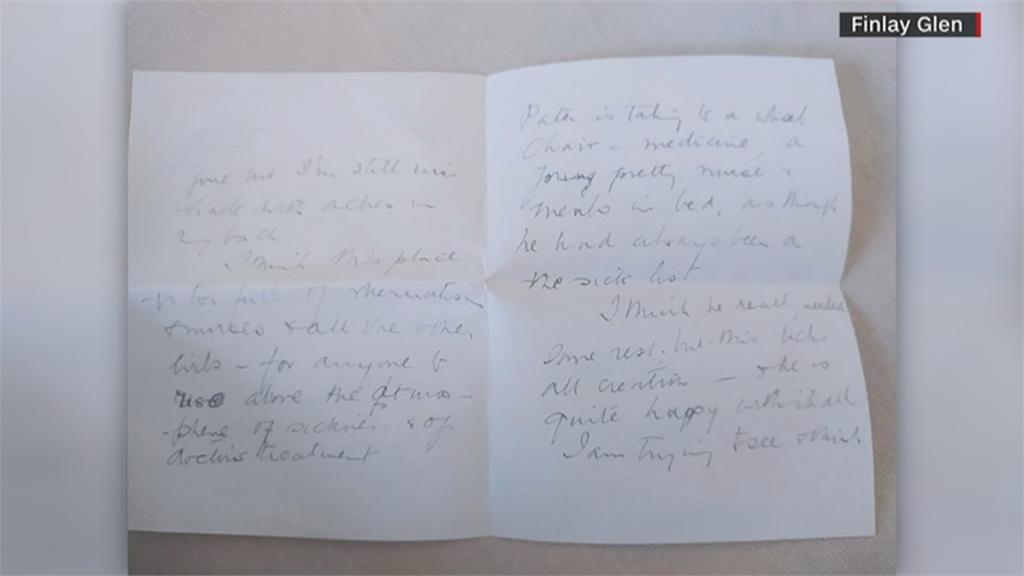 Finlay Glen
gone me I'm still mis-
-erable with aches in
my back.
I think this place
is too full of rheumatism
& nurses & all the other
– for anyone to
rise above the atmos-
-phere of sickness & of
doctor's treatment
Pater is taking to a wheel
Chair – medicine, a
young pretty nurse &
meals in bed, as though
he had always been a
the sick list.
I think he really needed
some rest. but this licks
all creation – & he is
quite happy with it all
I am trying to see & think